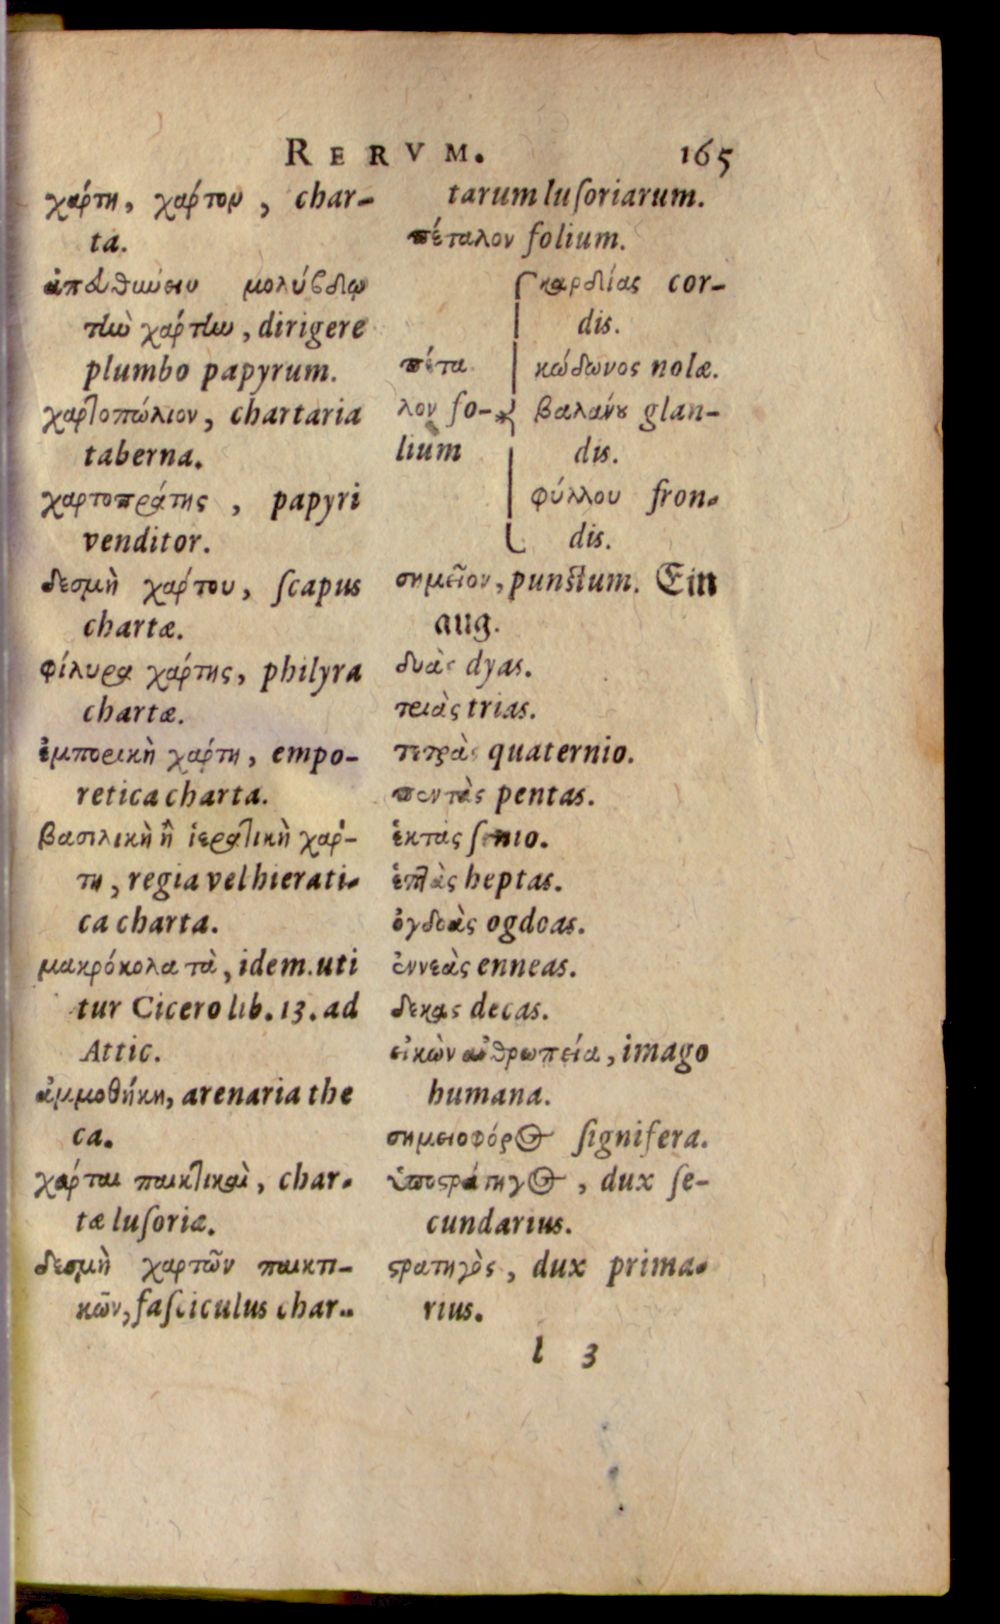 RERVM. 165
χάρτη, χάρτου, char-
ta.
ἀπευθύνειν μολύβδῳ
τὴν χάρτην, dirigere
plumbo papyrum.
χαρτοπώλιον, chartaria
taberna.
χαρτοπράτης, papyri
venditor.
δεσμὴ χάρτου, ſcapus
chartæ.
φίλυρα χάρτης, philyra
chartæ.
ἐμπορικὴ χάρτη, empo-
retica charta.
βασιλικὴ ἢ ἱερατικὴ χάρ-
τη, regia vel hierati-
ca charta.
μακρόκολα τὰ, idem. uti
tur Cicero lib. 13. ad
Attic.
ἀμμοθήκη, arenaria the
ca.
χάρται παικτικαὶ, char-
tæ luſoriæ.
δεσμὴ χαρτῶν παικτι-
κῶν, faſciculus char-
tarum luſoriarum.
πέταλον folium.
καρδίας cor-
dis.
πέτα κώδωνος nolæ.
λον fo- βαλάνου glan-
lium dis.
φύλλου fron-
dis.
σημεῖον, punctum. Ein
aug.
δυὰς dyas.
τριὰς trias.
τετρὰς quaternio.
πεντὰς pentas.
ἑκτὰς ſenio.
ἑπτὰς heptas.
ὀγδοὰς ogdoas.
ἐννεὰς enneas.
δεκὰς decas.
εἰκὼν ἀνθρωπεία, imago
humana.
σημειοφόρος ſignifera.
ὑποστράτηγος, dux ſe-
cundarius.
στρατηγὸς, dux prima-
rius.
l 3